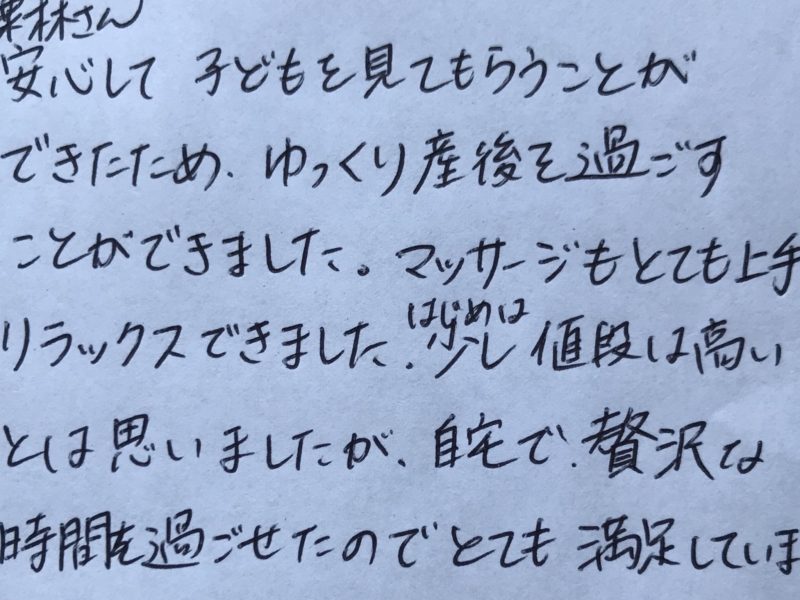 栗林さん
安心して 子どもを見てもらうことが
できたため、ゆっくり産後を過ごす
ことができました。マッサージもとても上手
リラックスできました。はじめは少し値段は高い
とは思いましたが、自宅で、贅沢な
時間を過ごせたのでとても満足していま